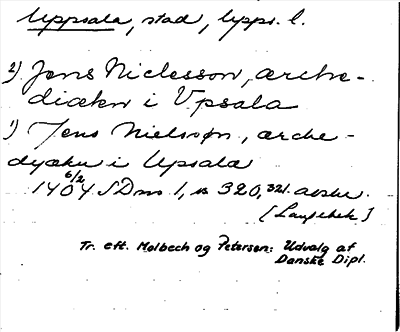 Uppsala, stad, Upps. l.
2) Jens Niclesson, ærche-
diækn i Vpsala
1) Jens Nielssøn, arche-
dyækn i Upsala
6/2
1404 SDns 1, s 320, 321. avskr.
[Langebek]
Tr. eft. Molbech og Petersen: Udvalg af
Danske Dipl.